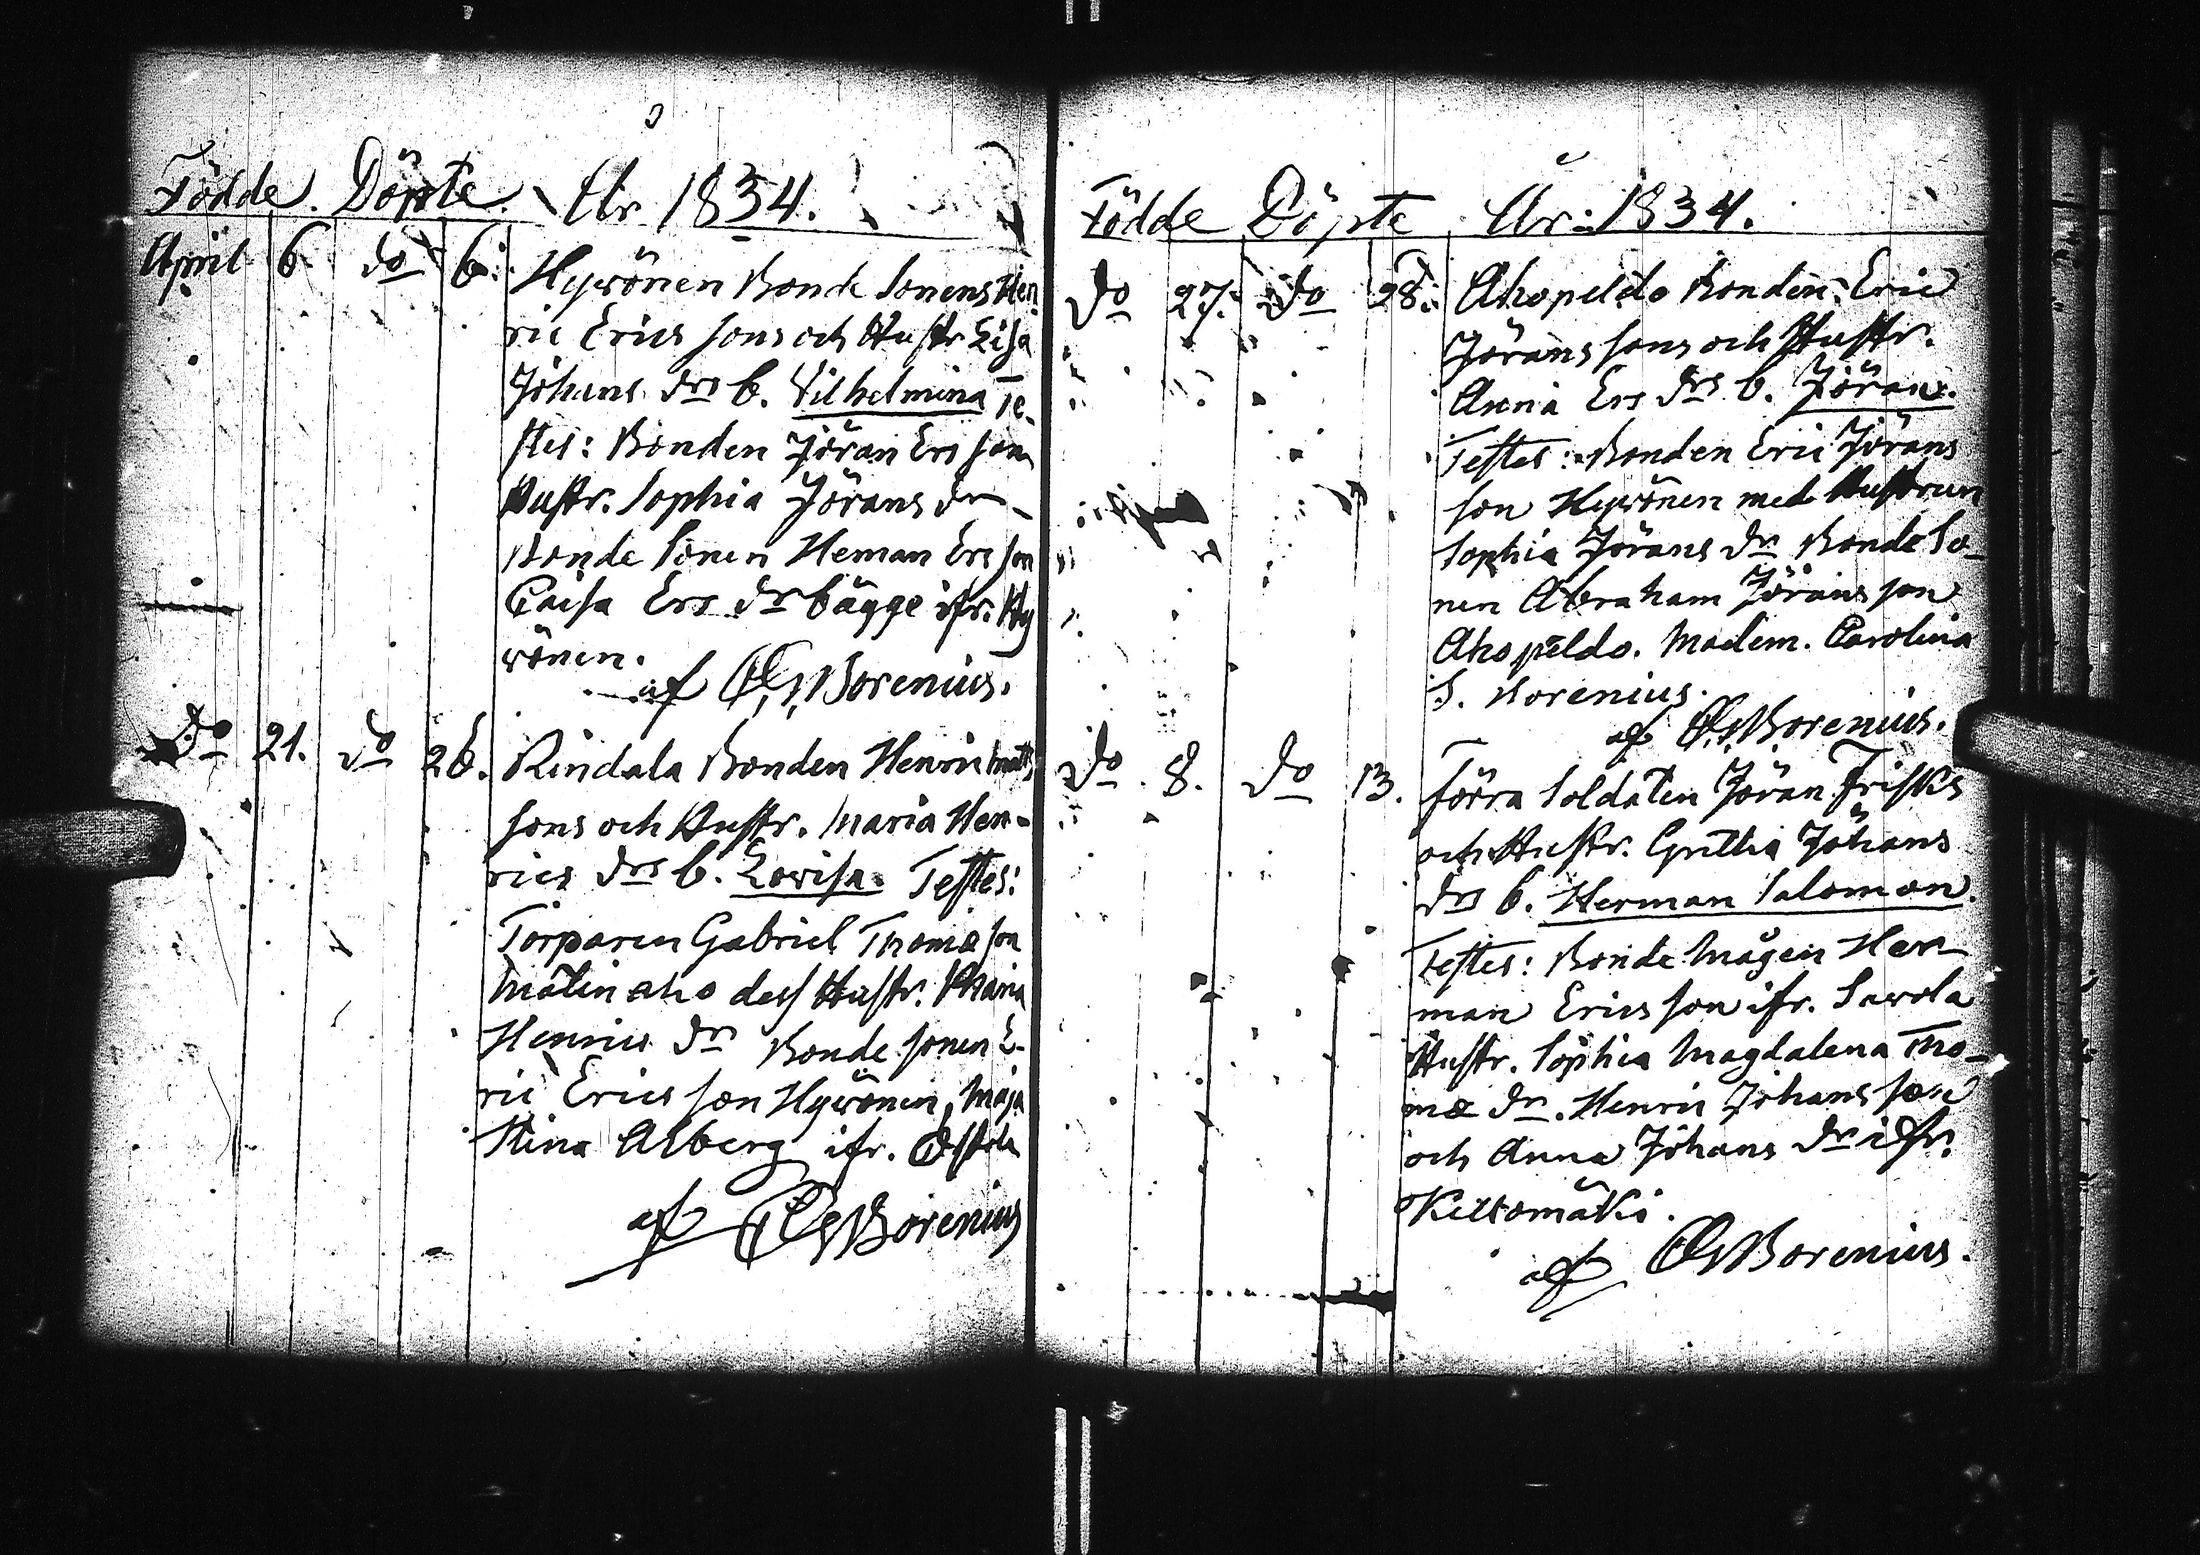 Födde. Döpte. År 1834.
April 6 do 6. Hyvönen Bonde Sonens Hen
ric Erics sons och Hustr Lisa
Johans drs b. Vilhelmina Te-
stes: Bonden Jöran Ers son
Hustr. Sophia Jörans dr
Bonde Sonen Heman Ers son
Caisa Ers dr bägge ifr. Hy
vönen.
af Borenius.
do 21. do 26. Rindala Bonden Henric Matts
sons och Hustr. Maria Hen-
rics drs b. Lovisa. Testes:
Torparen Gabriel Thomæ son
Mätinaho dess Hustr. Maria
Henrics dr Bonde sonen E-
ric Erics son Hyvönen, Maja
Stina Alberg ifr.
af Borenius
Födde Döpte År: 1834.
do 27. do 28. Ahopeldo Bonden Eric
Jörans sons och Hustr.
Anna Ers drs b. Jöran.
Testes: Bonden Eric Jörans
son Hyvönen med Hustrun
Sophia Jörans dr Bonde So-
nen Abraham Jörans son
Ahopeldo. Madem. Carolina
S. Borenius.
af Borenius.
do 8. do 13. Förra Soldaten Jöran Frisks
och Hustr. Gretha Johans
drs b. Herman Salomon.
Testes: Bonde Mågen Her-
man Erics son ifr. Savola
Hustr. Sophia Magdalena Tho-
mæ dr. Henric Johans son
och Anna Johans dr ifr.
Keltomäki.
af Borenius.